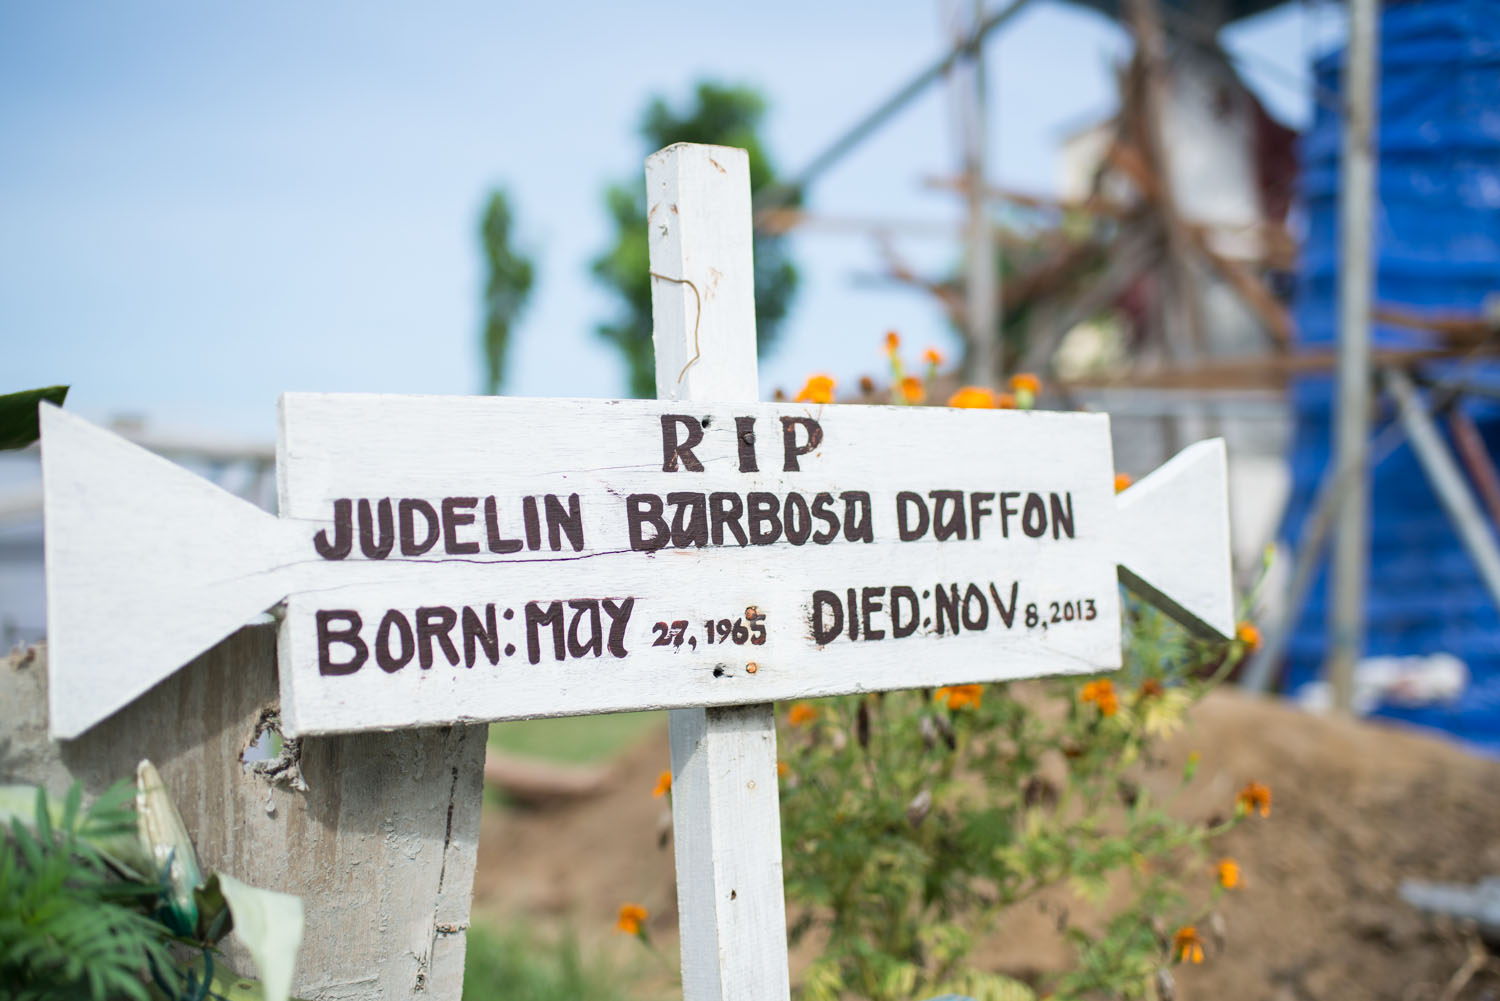 R I P
JUDELIN BARBOSA DAFFON
BORN: MAY 27, 1965 DIED: NOV 8, 2013